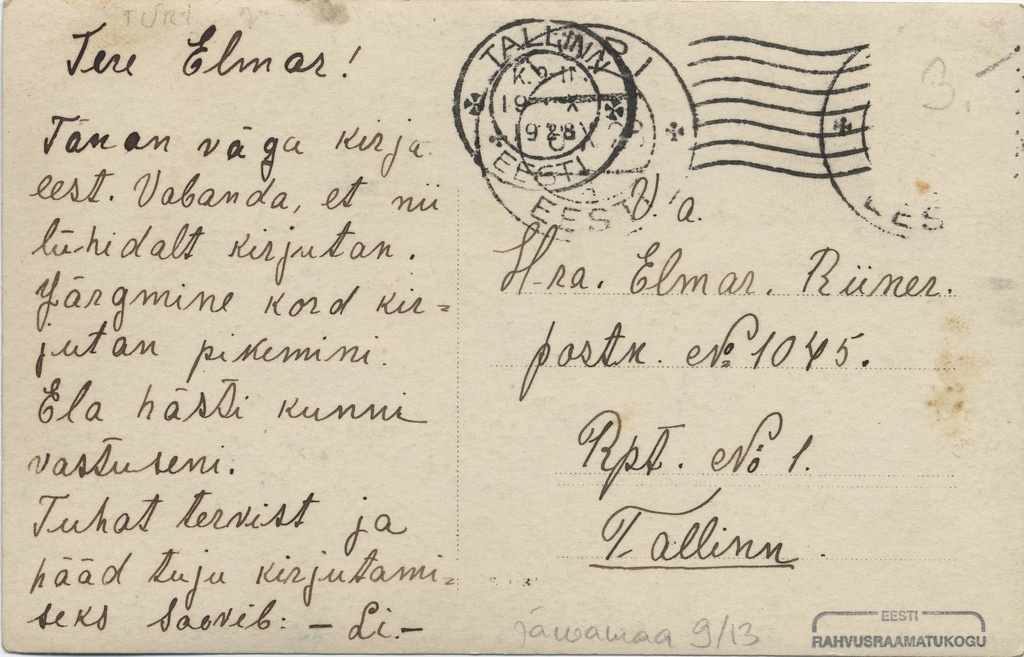 TÜRI
Tere Elmar!
Tänan väga kirja
eest. Vabanda, et nii
lühidalt kirjutan.
Järgmine kord kir=
jutan pikemini.
Ela hästi kunni
vastuseni.
Tuhat tervist ja
hääd tuju kirjutami=
seks soovib: – Li.–
TALLINN
19 X
1928
EESTI
EESTI
EES
3.
V. a.
H-ra. Elmar. Riiner.
postk. № 1045.
Rpt. № 1.
Tallinn.
järvamaa 9/13
EESTI
RAHVUSRAAMATUKOGU